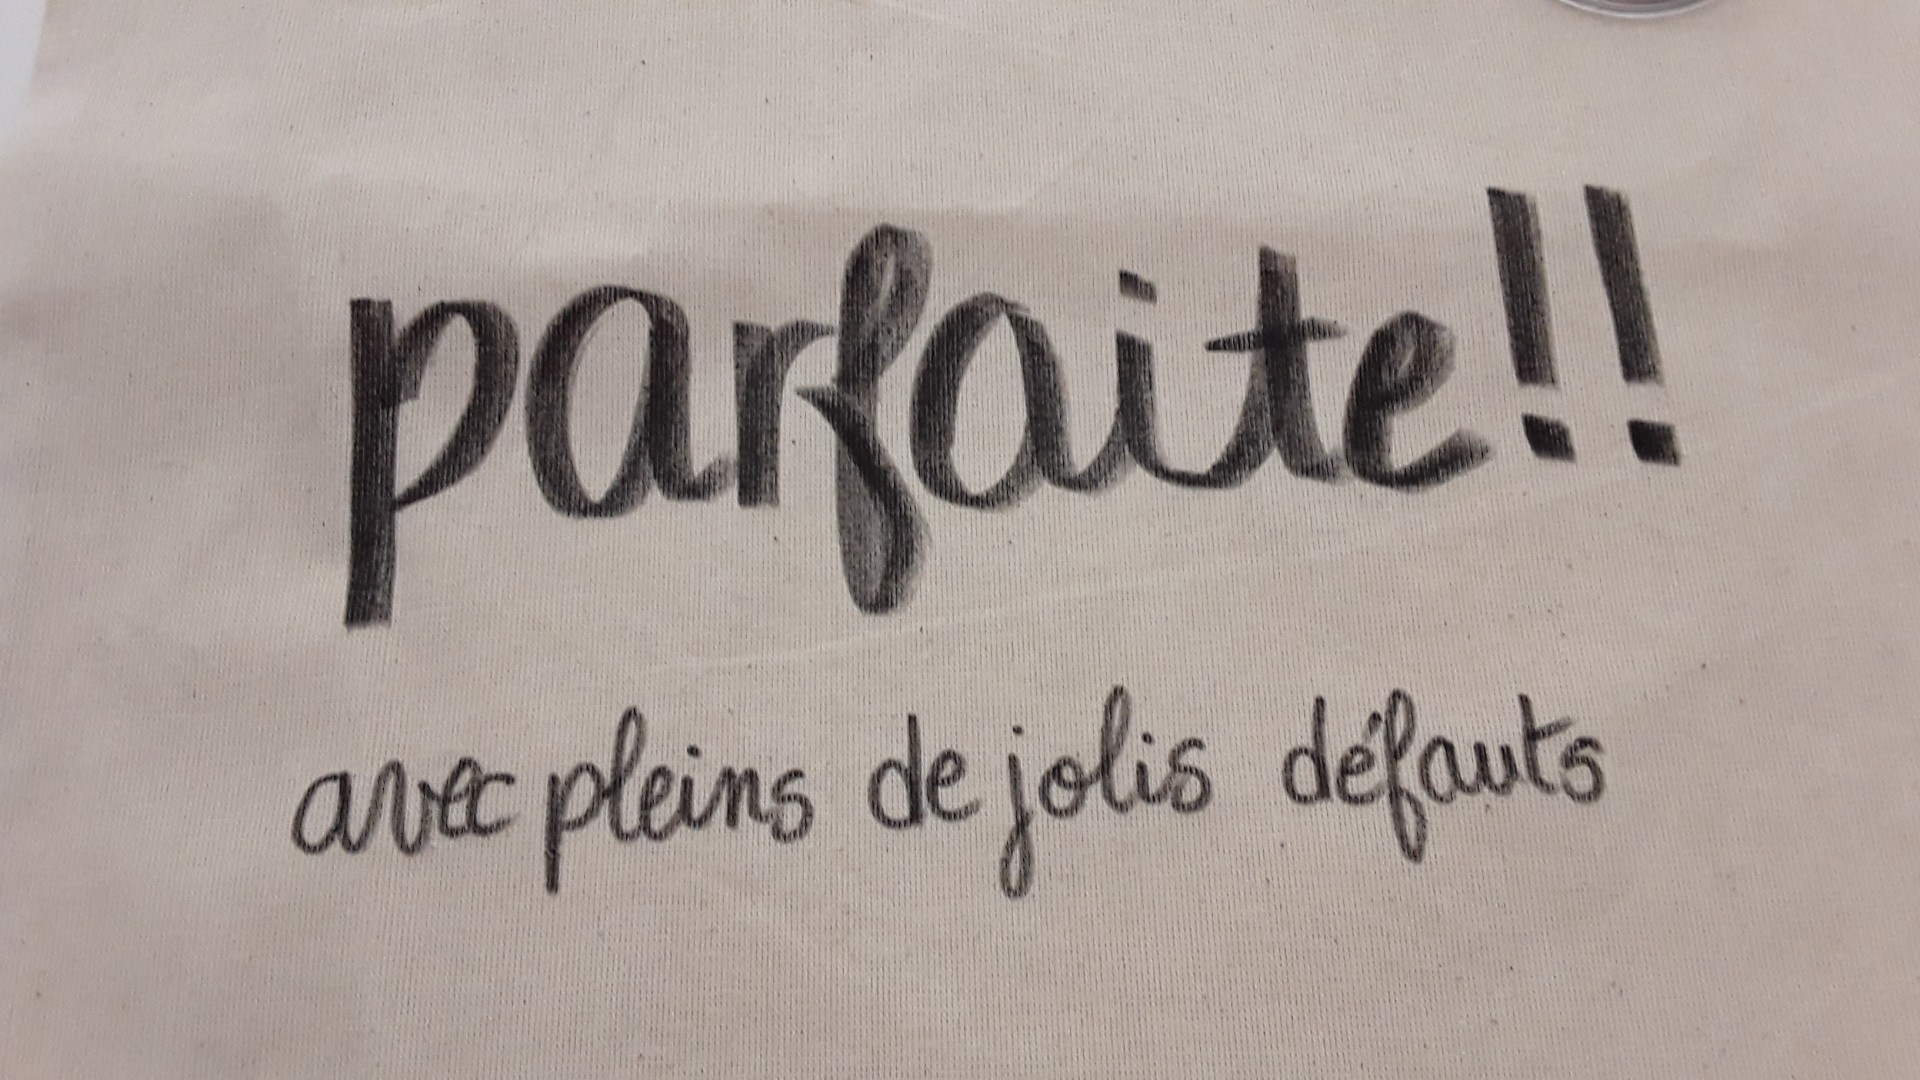 parfaite!!
avec pleins de jolis défauts